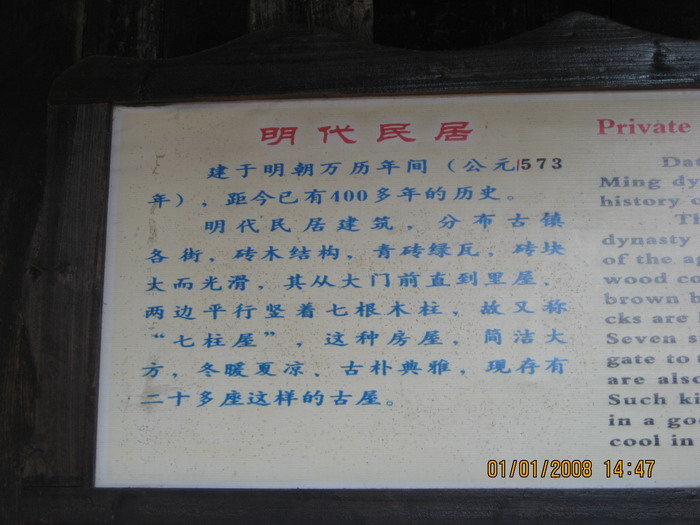 明代民居
建于明朝万历年间（公元1573
年），距今已有400多年的历史。
明代民居建筑，分布古镇
各街，砖木结构，青砖绿瓦，砖块
大而光滑，其从大门前直到里屋，
两边平行竖着七根木柱，故又称
“七柱屋”，这种房屋，简洁大
方，冬暖夏凉、古朴典雅，现存有
二十多座这样的古屋。
Private
Dat
Ming dy
history o
Th
dynasty
of the ag
wood co
brown b
cks are l
Seven s
gate to
are also
Such ki
in a go
cool in
01/01/2008 14:47